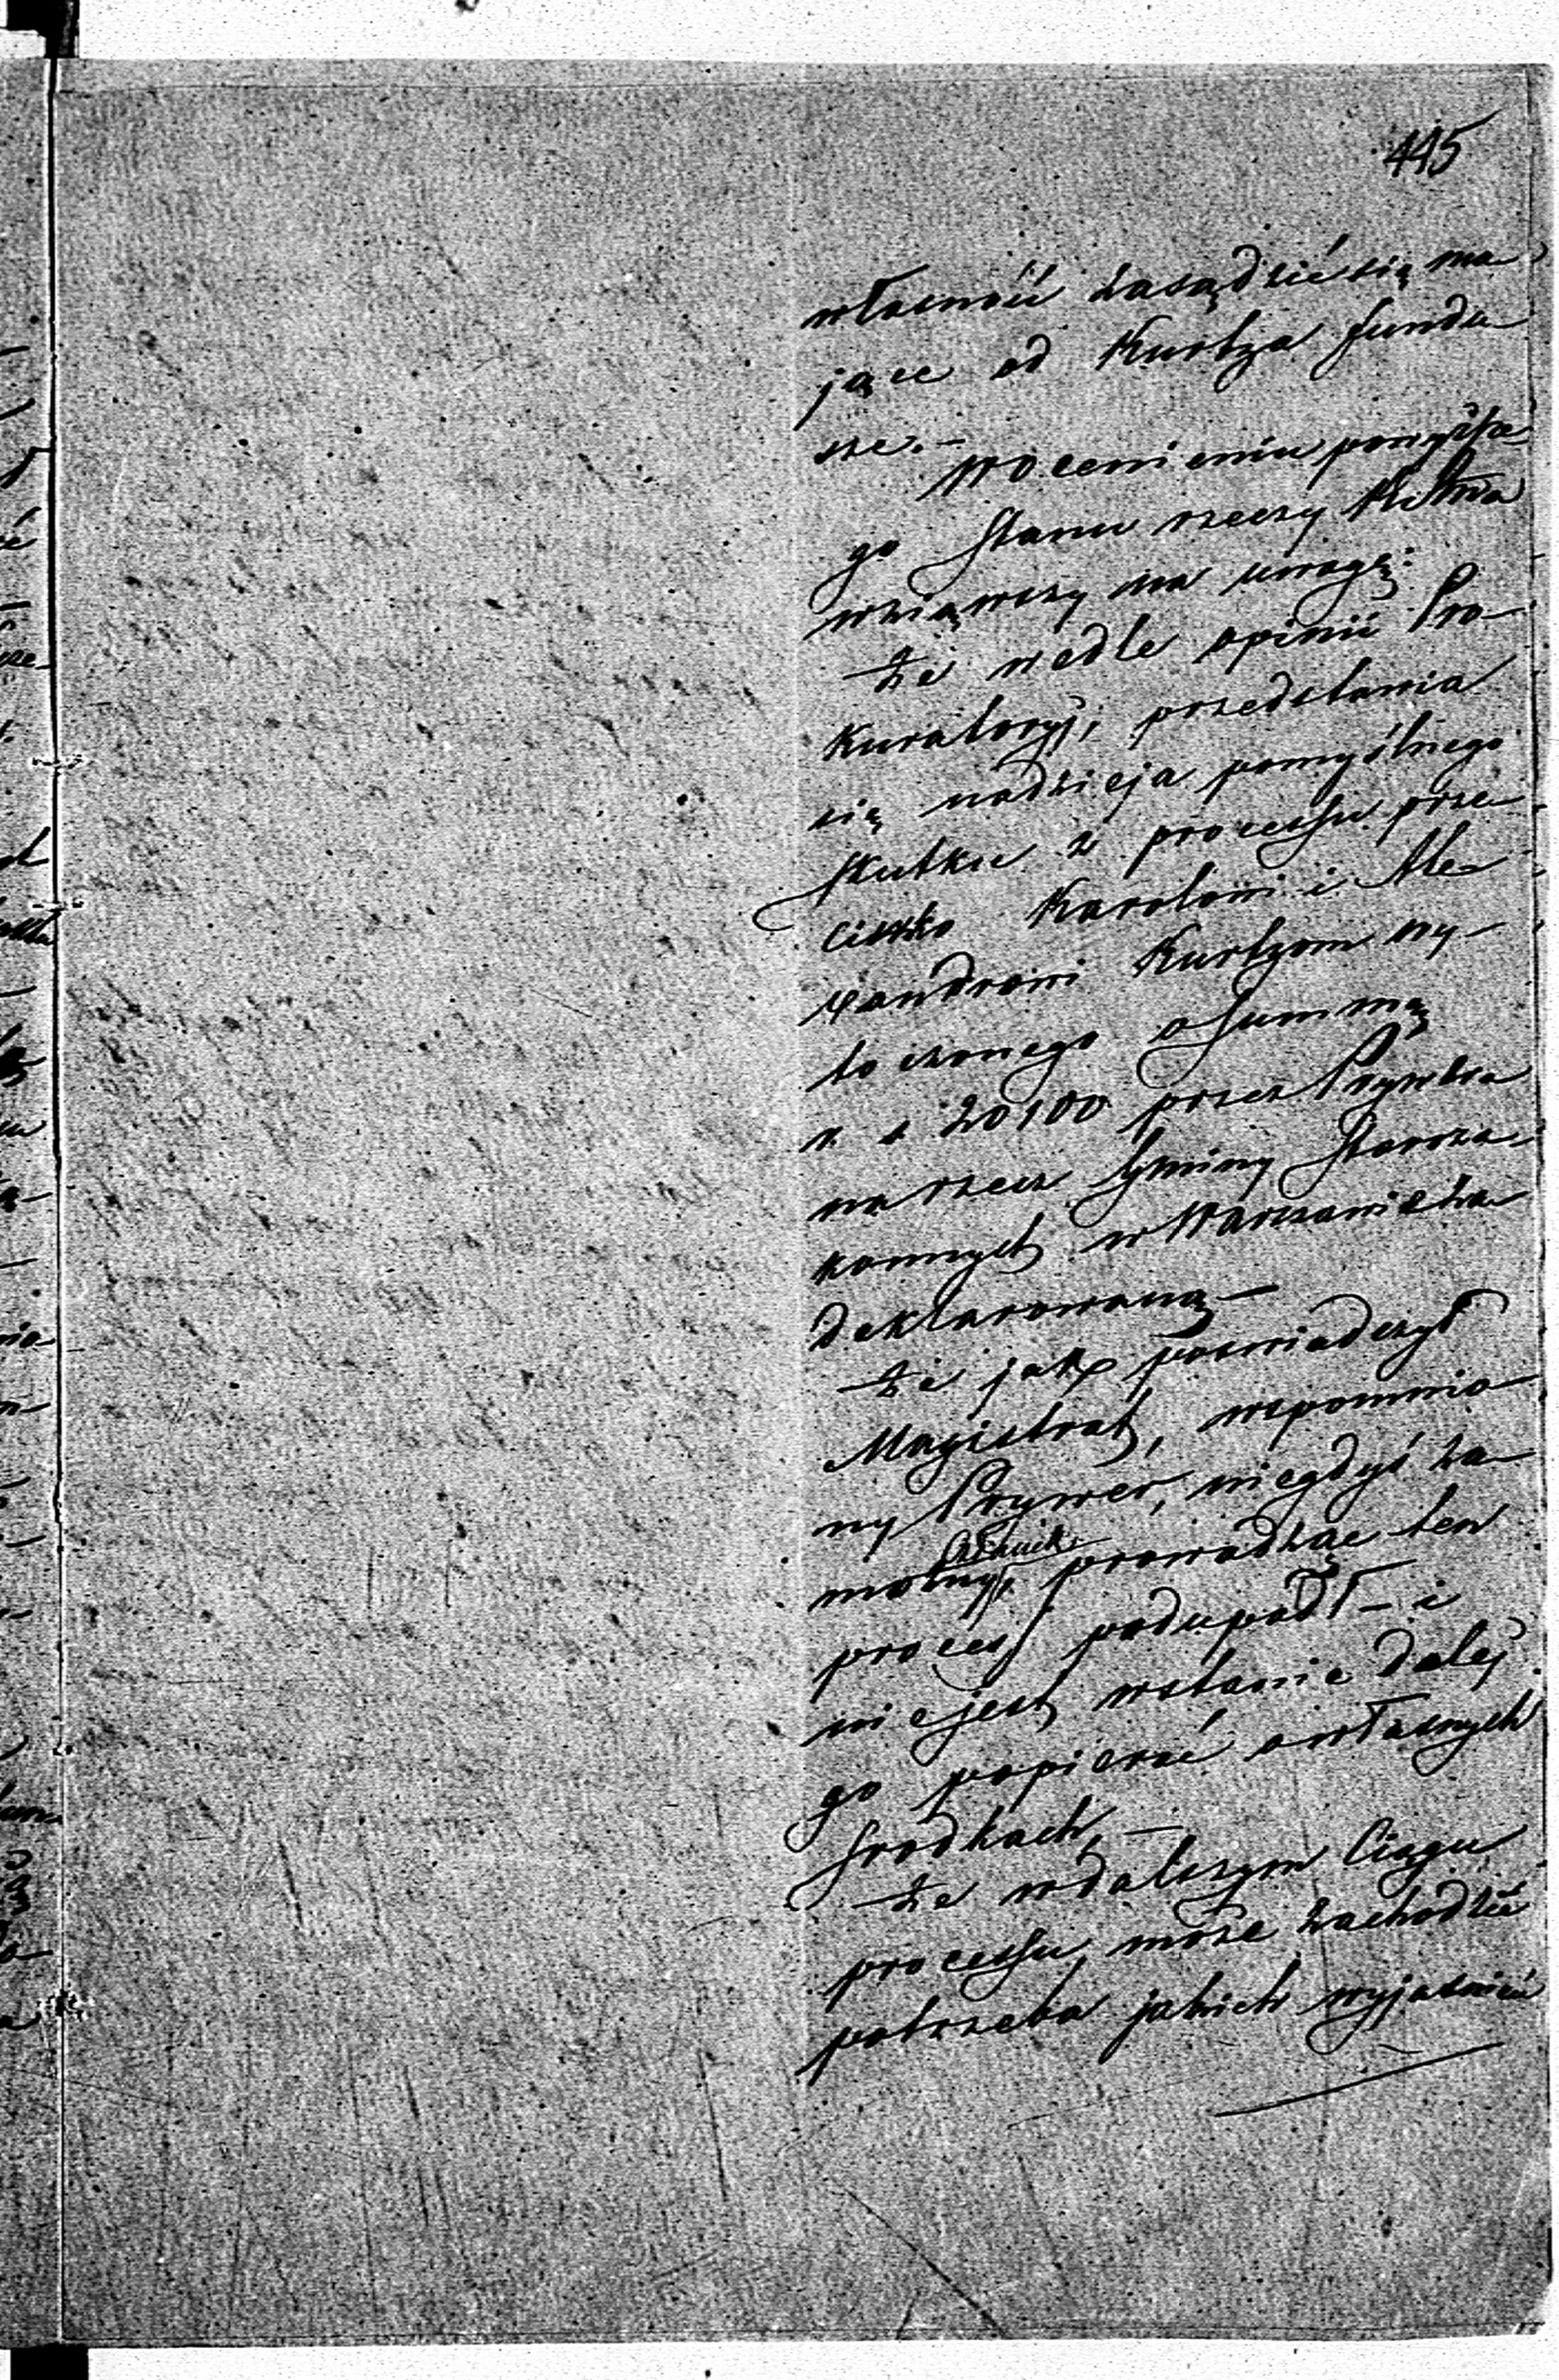 445
własność zasądzić się ma
jące od Kurtza fundu
sze.-
W ocenieniu powyższe
go Stanu rzeczy
wziąwszy na uwagę:
że wedle opinii Pro-
kuratoryi, przedstawia
się nadzieja pomyślnego
skutku z processu prze
ciwko Karolowi i Ale
xandrowi Kurtzom wy-
toczonego o summę
r. s 20100 przez Prywera
na rzecz Gminy Staroza
konnych w Warszawie za
deklarowaną-
że jak poświadczył
Magistrat, wspomnio
ny Prywer, niegdyś za
możny, prowadząc ten
process podupadł - i
nie jest wstanie dalej
go popierać o własnych
środkach, -
że w dalszym Ciągu
processu może zachodzić
potrzeba jakich wyjaśnień